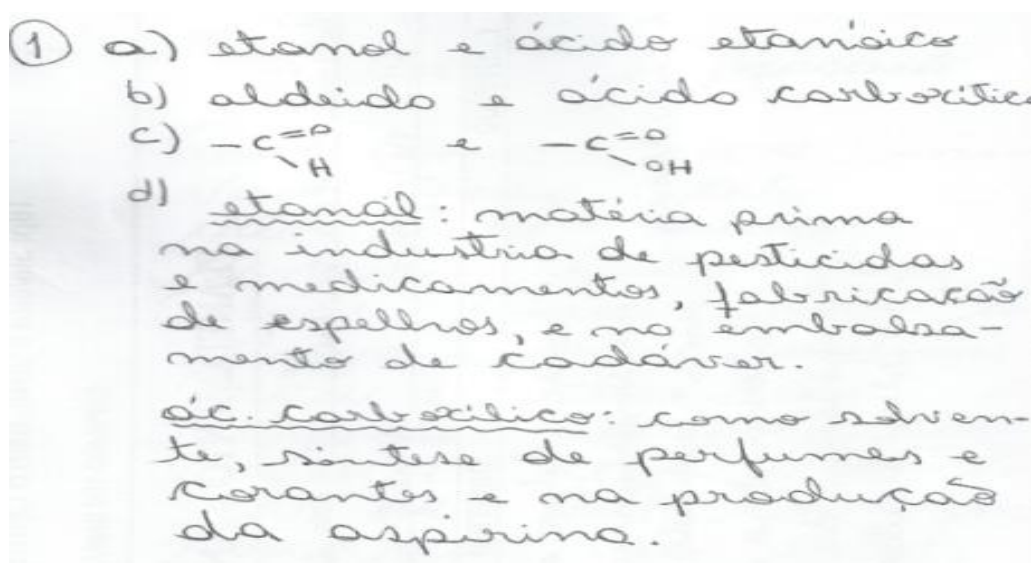 ① a) etanol e ácido etanóico
b) aldeido e ácido carboxílico
c) -C=O H e -C=O OH
d) etanal: matéria prima
na industria de pesticidas
e medicamentos, fabricação
de espelhos, e no embalsa-
mento de cadáver.
ác. carboxílico: como solven-
te, síntese de perfumes e
corantes e na produção
da aspirina.